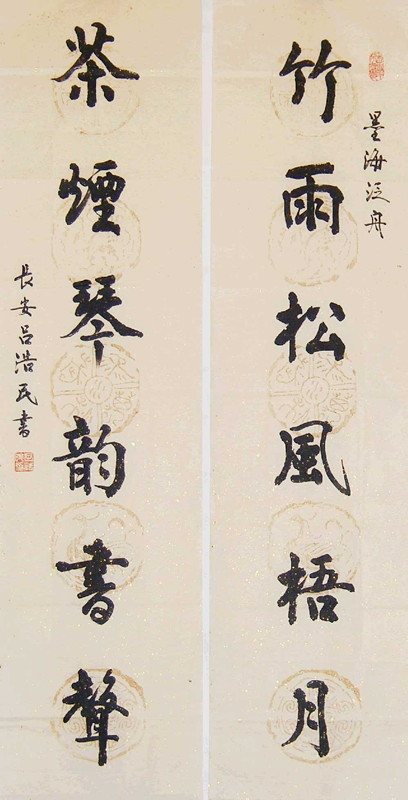 墨海泛舟
竹雨松風梧月
茶煙琴韵書聲
長安吕浩民書